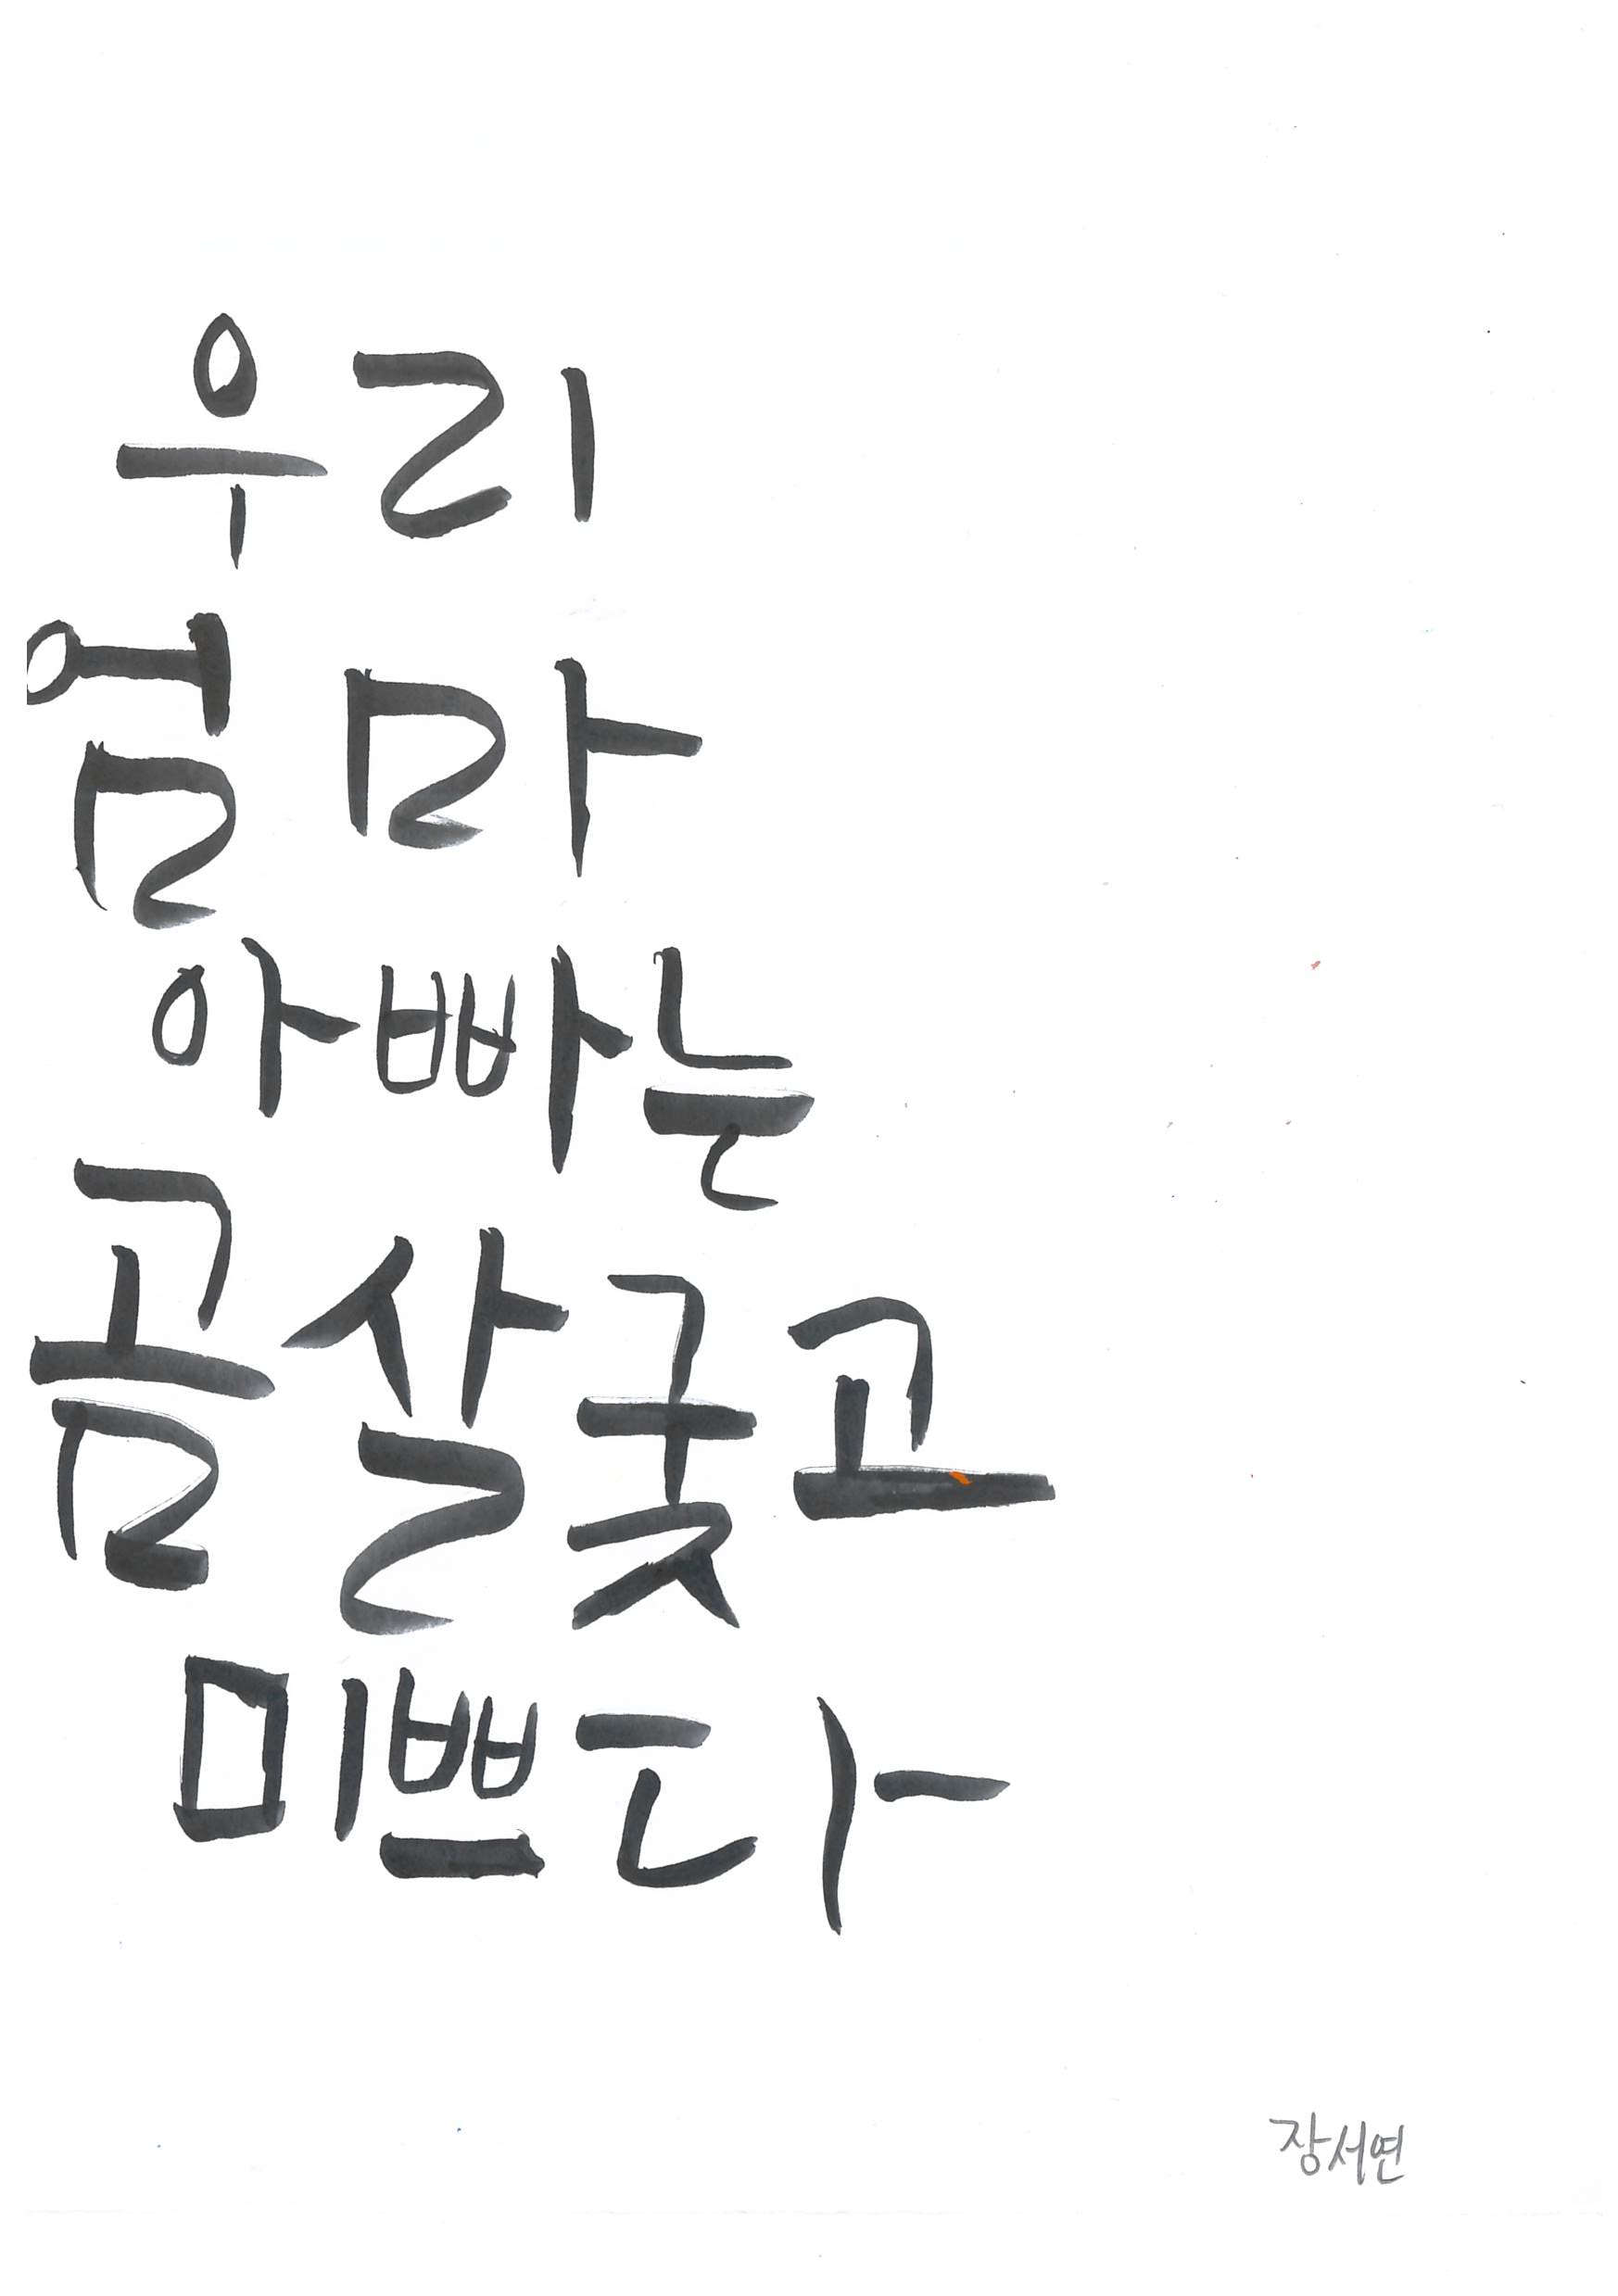 우리
엄마
아빠는
곰살궂고
미쁘다
장서연